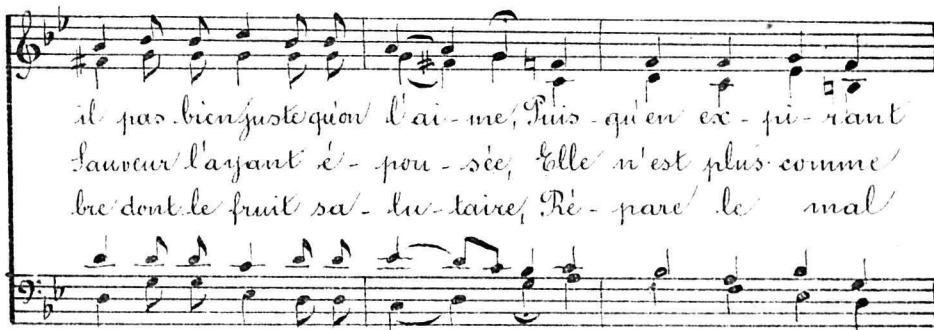 il pas bien juste qu'on l'ai - me, Puis - qu'en ex - pi - rant
Sauveur l'ayant é - pou - sée, Elle n'est plus comme
bre dont le fruit sa - lu - taire, Ré - pare le mal